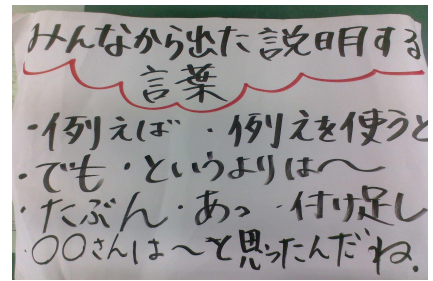 みんなから出た説明する
言葉
・例えば ・例えを使うと
・でも ・というよりは〜
・たぶん ・あっ ・付け足し
・〇〇さんは〜と思ったんだね.